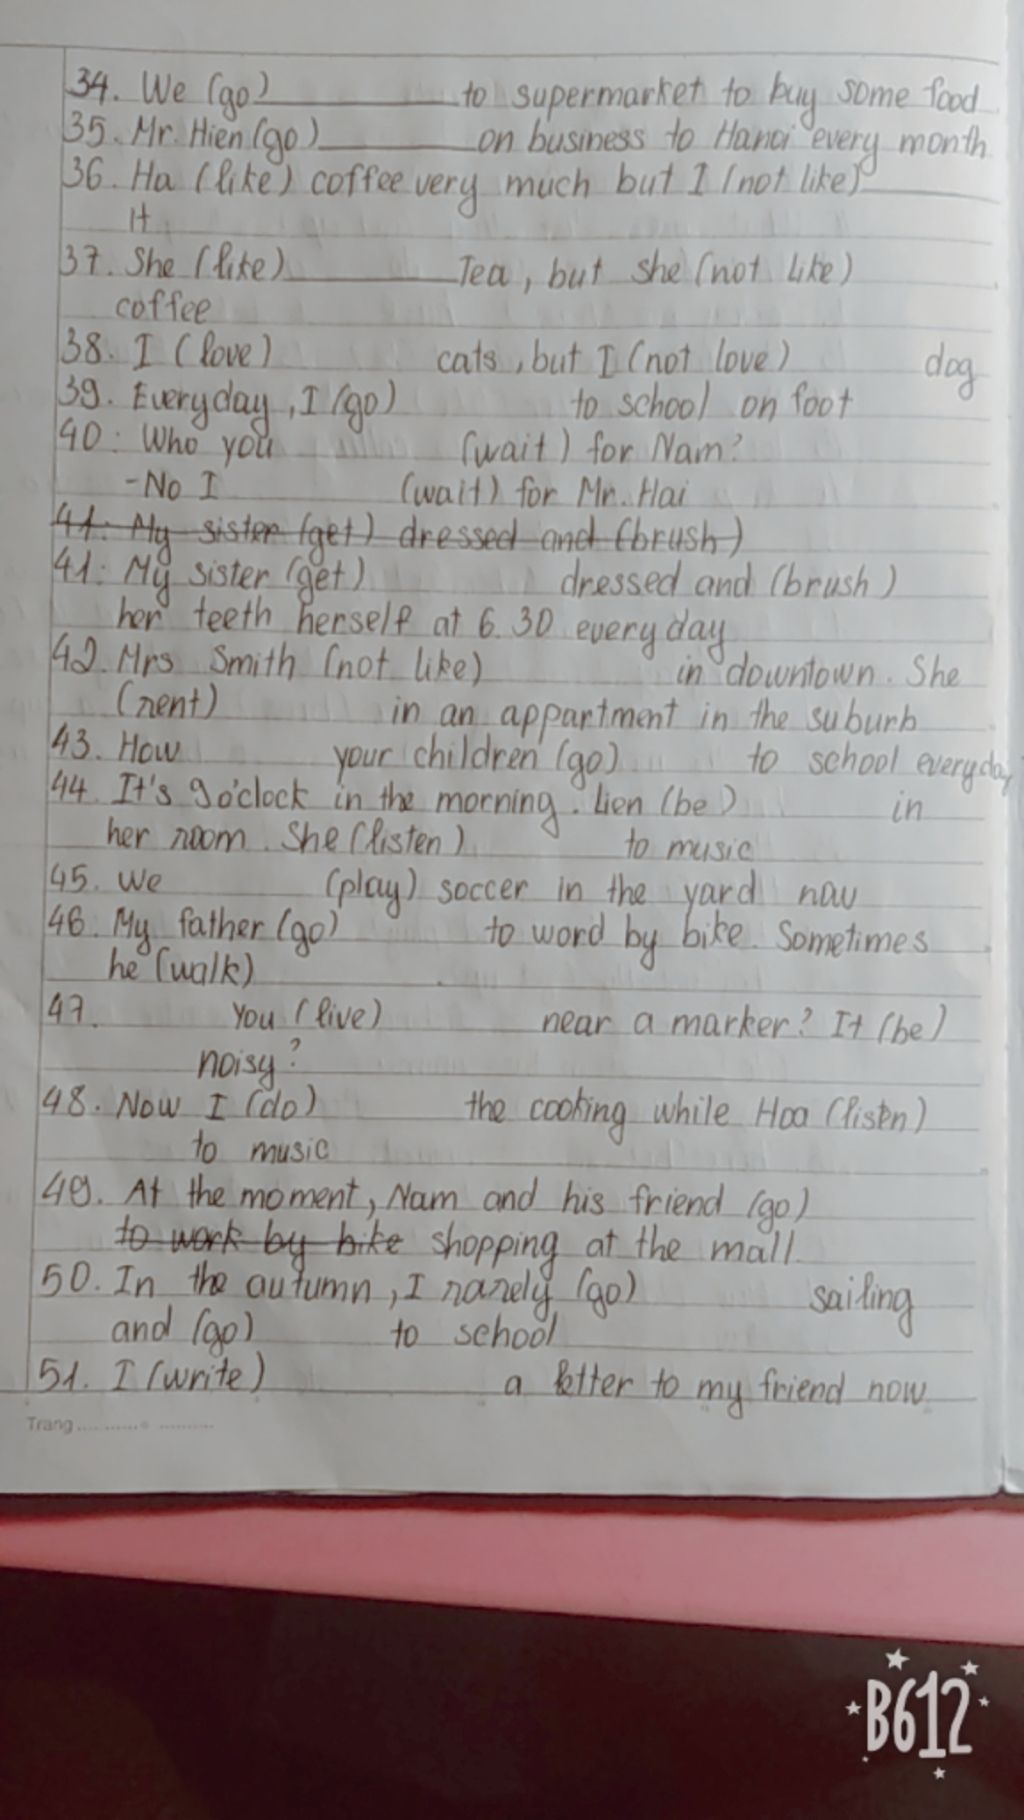 34. We (go)__________to supermarket to buy some food
35. Mr. Hien (go)__________on business to Hanoi every month
36. Ha (like) coffee very much but I (not like)________
It
37. She (like)__________Tea, but she (not like)
coffee
38. I (love) cats, but I (not love) dog
39. Everyday, I (go) to school on foot
40. Who you (wait) for Nam?
-No I (wait) for Mr. Hai
41. My sister (get) dressed and (brush)
41. My sister (get) dressed and (brush)
her teeth herself at 6.30 everyday
42. Mrs Smith (not like) in downtown. She
(rent) in an appartment in the suburb
43. How your children (go) to school everyday
44. It's 9 o'clock in the morning. Lien (be) in
her room. She (listen) to music
45. We (play) soccer in the yard now
46. My father (go) to word by bike. Sometimes
he (walk)
47. You (live) near a marker? It (be)
noisy?
48. Now I (do) the cooking while Hoa (listen)
to music
49. At the moment, Nam and his friend (go)
to work by bike shopping at the mall
50. In the autumn, I rarely (go) sailing
and (go) to school
51. I (write) a letter to my friend now
Trang
B612